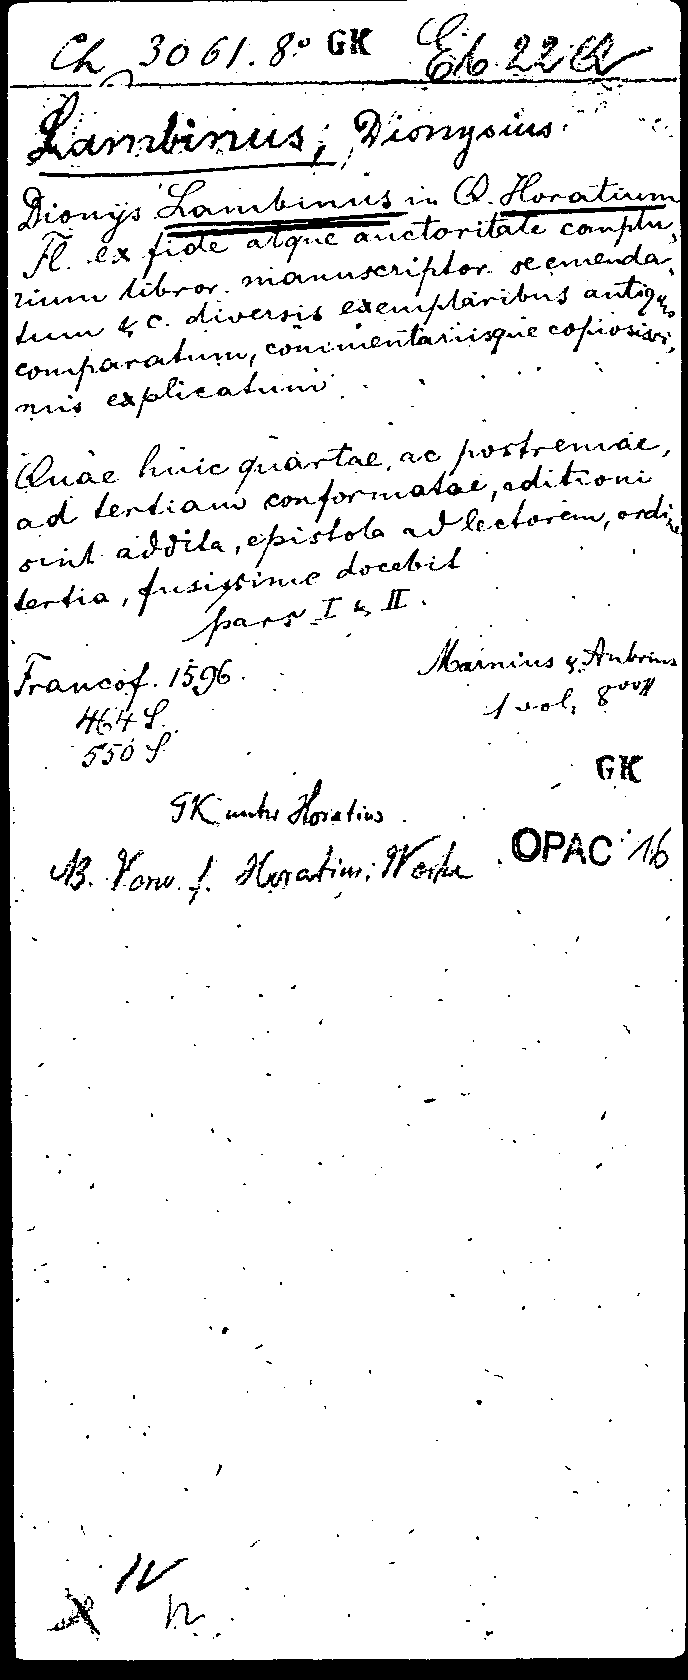 Ch 3061.8° GK Eb 22 a
Lambinus, Dionysius.
Dionys Lambinus in Q. Horatium
Fl. ex fide atque auctoritate complu,
rium libror. manuscriptor. se emenda,
tum & c. diversis exemplaribus antiquis
comparatum, commentariisque copiosissi,
mis explicatum.
Quae huic quartae, ac postremae,
ad tertiam conformatae, editioni
sint addita, epistola ad lectorem, ordine
tertia, fusissime docebit
pars I & II.
Francof. 1596. Marnius & Aubrius
464 S. 1 vol, 8
550 S.
GK
GK unter Horatius
NB. Vorw. f. Horatius: Werke OPAC 16